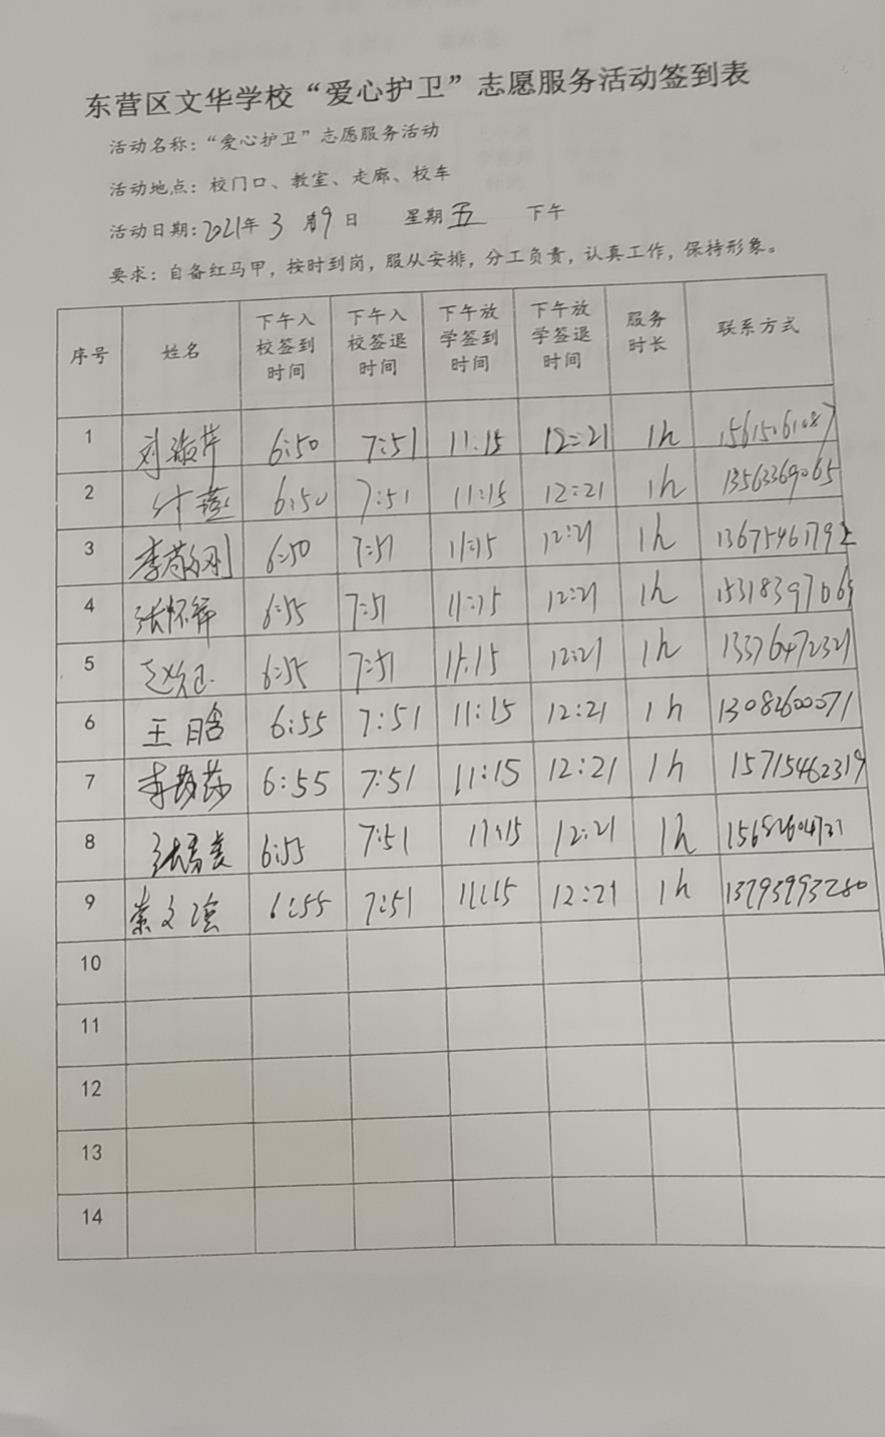 东营区文华学校“爱心护卫”志愿服务活动签到表
活动名称：“爱心护卫”志愿服务活动
活动地点：校门口、教室、走廊、校车
活动日期：2021年 3 月19日 星期五 下午
要求：自备红马甲，按时到岗，服从安排，分工负责，认真工作，保持形象。
序号 姓名 下午入校签到时间 下午入校签退时间 下午放学签到时间 下午放学签退时间 服务时长 联系方式
1 6:50 7:51 11:15 12:21 1h
2 6:50 7:51 11:15 12:21 1h 13563369065
3 6:50 7:51 11:15 12:21 1h
4 张怀 6:55 7:51 11:15 12:21 1h
5 6:55 7:51 11:15 12:21 1h 13376472321
6 王晗 6:55 7:51 11:15 12:21 1h 13082600071
7 李莎莎 6:55 7:51 11:15 12:21 1h 15715462319
8 6:55 7:51 11:15 12:21 1h
9 6:55 7:51 11:15 12:21 1h 13793993280
10
11
12
13
14